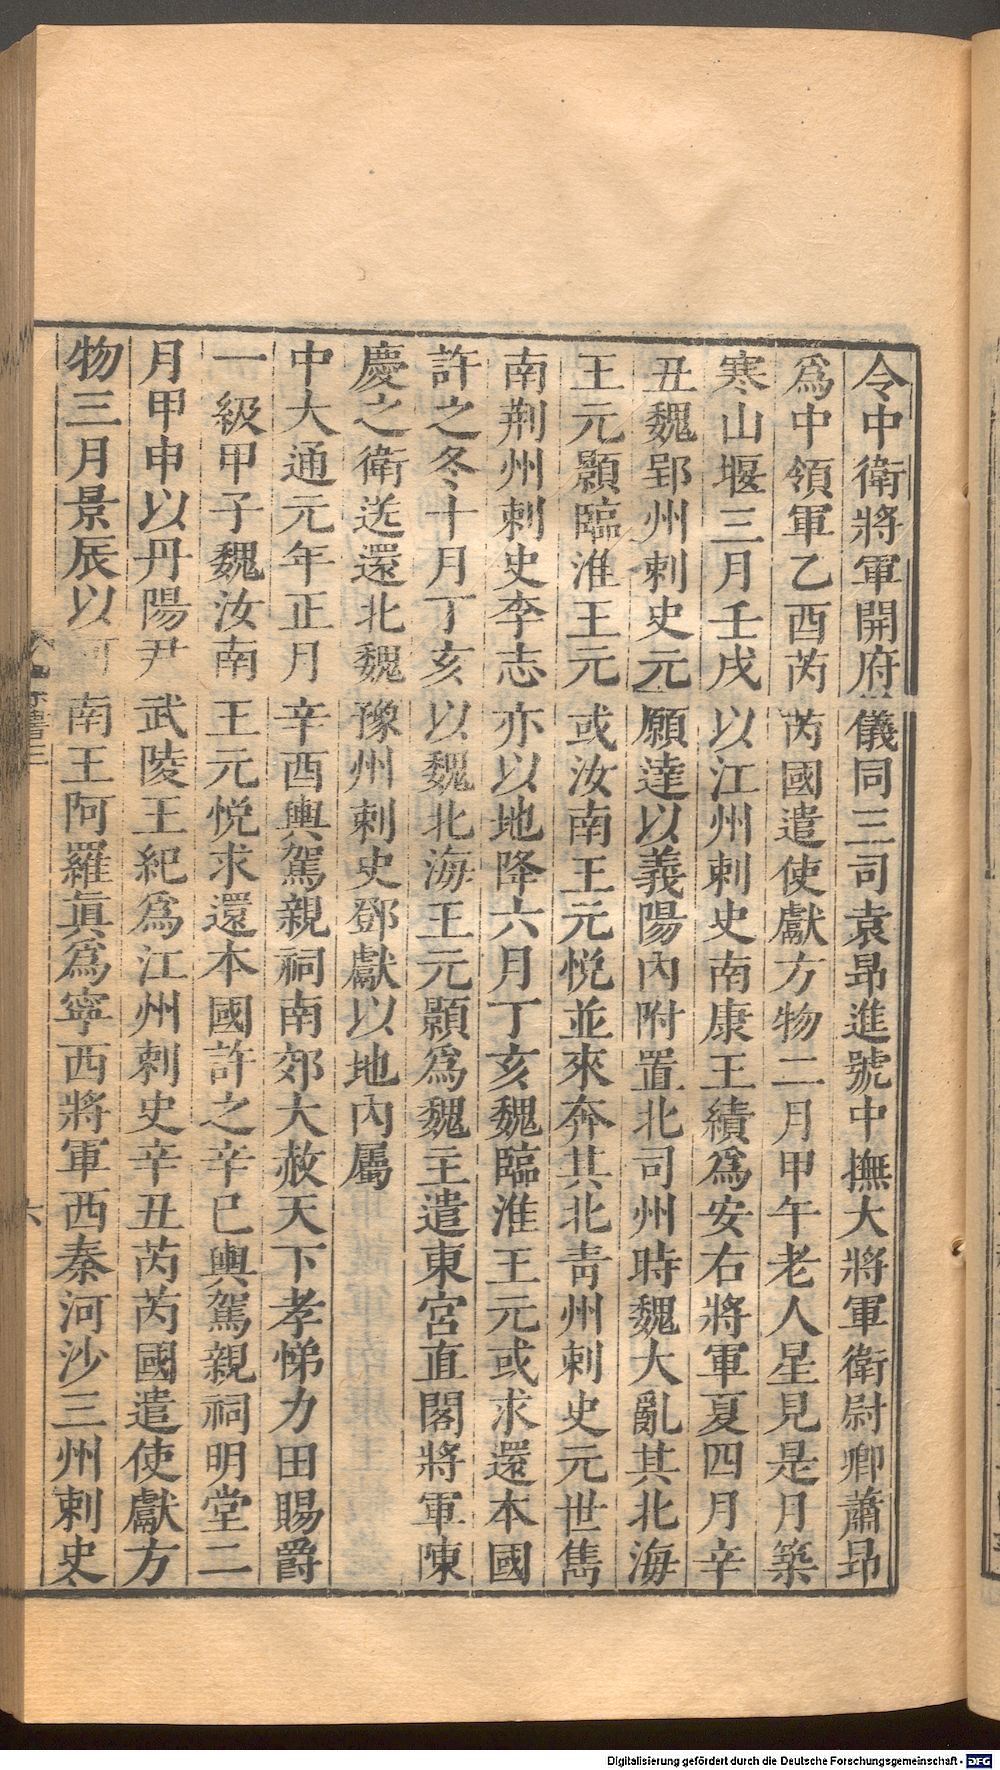 令中衛將軍開府儀同三司袁昂進號中撫大將軍衛尉卿蕭昂
爲中領軍乙酉芮芮國遣使獻方物二月甲午老人星見是月築
寒山堰三月壬戌以江州刺史南康王績爲安右將軍夏四月辛
丑魏郢州刺史元願達以義陽內附置北司州時魏大亂其北海
王元顥臨淮王元或汝南王元悅並來奔其北靑州刺史元世雋
南荆州刺史李志亦以地降六月丁亥魏臨淮王元或求還本國
許之冬十月丁亥以魏北海王元顥爲魏主遣東宮直閣將軍陳
慶之衛送還北魏豫州刺史鄧獻以地內屬
中大通元年正月辛酉輿駕親祠南郊大赦天下孝悌力田賜爵
一級甲子魏汝南王元悅求還本國許之辛巳輿駕親祠明堂二
月甲申以丹陽尹武陵王紀爲江州刺史辛丑芮芮國遣使獻方
物三月景辰以河南王阿羅眞爲寧西將軍西秦河沙三州刺史
六
Digitalisierung gefördert durch die Deutsche Forschungsgemeinschaft - DFG